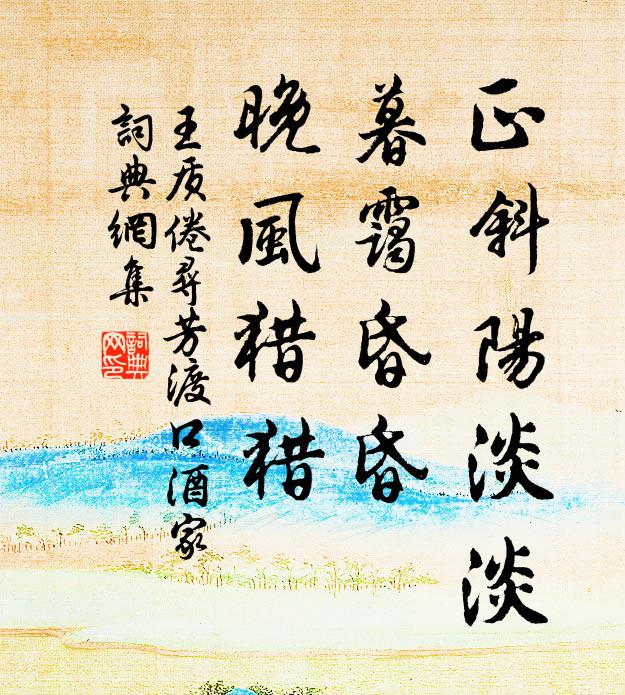 正斜陽淡淡
暮靄昏昏
晚風猎猎
王质倦尋芳渡口酒家
詞典網集
詞典
网印